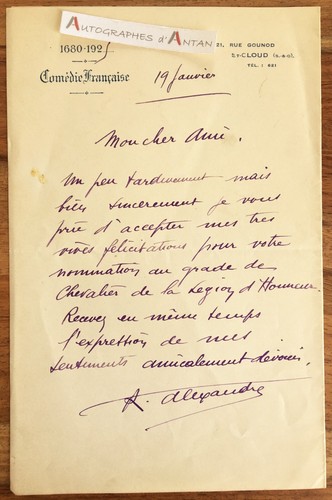 AUTOGRAPHES d'ANTAN
1680-192
Comédie Française
21, RUE GOUNOD
St-CLOUD (S.-&-O.)
TÉL : 651
19 Janvier
Mon cher Ami.
Un peu tardivement mais
bien sincerement je vous
prie d'accepter mes tres
vives félicitations pour votre
nomination au grade de
Chevalier de la Legion d'Honneur.
Recevez en même temps
l'expression de mes
sentiments amicalement dévoués.
R. Alexandre